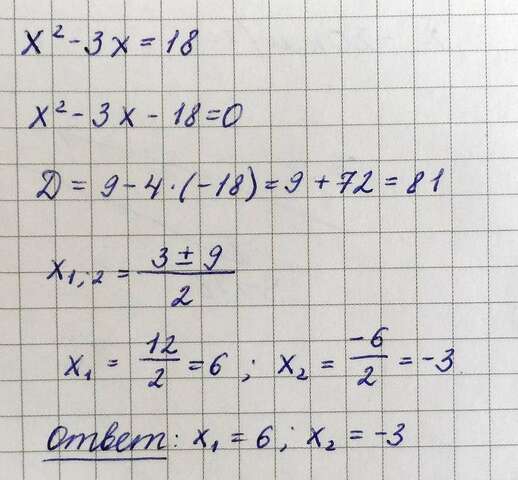 x² - 3x = 18
x² - 3x - 18 = 0
D = 9 - 4 · (-18) = 9 + 72 = 81
x₁;₂ = (3 ± 9)/2
x₁ = 12/2 = 6 ; x₂ = -6/2 = -3
Ответ: x₁ = 6 ; x₂ = -3